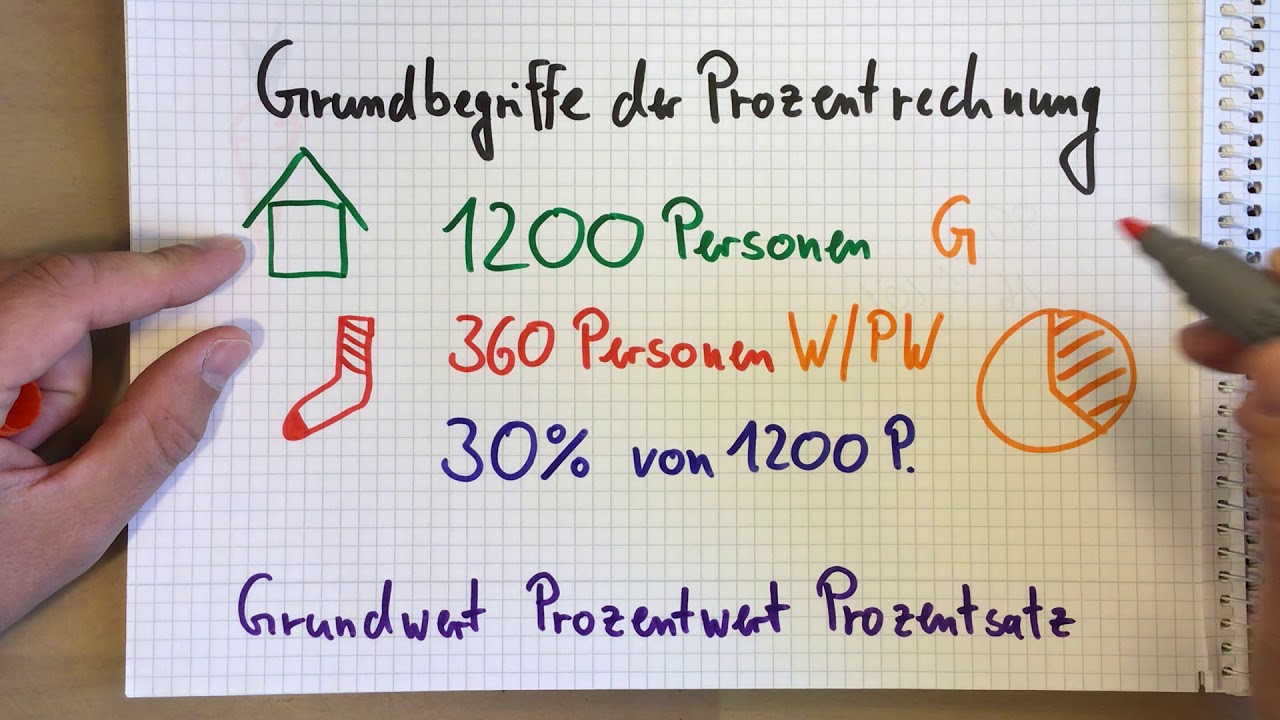 Grundbegriffe der Prozentrechnung
1200 Personen G
360 Personen W/PW
30% von 1200 P.
Grundwert Prozentwert Prozentsatz